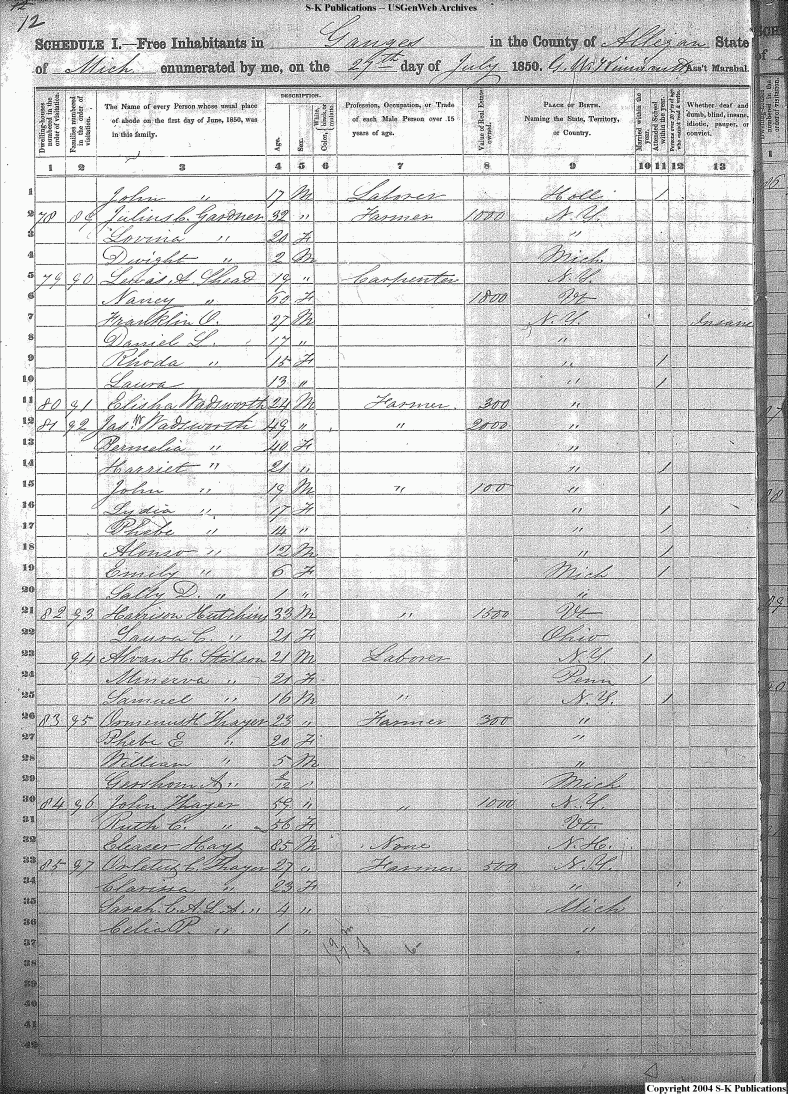 S-K Publications – USGenWeb Archives
12
SCHEDULE I.—Free Inhabitants in Ganges in the County of Allegan State
of Mich. enumerated by me, on the 29th day of July 1850. Ass't Marshal.
Dwelling-houses numbered in the order of visitation.
Families numbered in the order of visitation.
The Name of every Person whose usual place of abode on the first day of June, 1850, was in this family.
DESCRIPTION.
Age.
Sex.
Color, White, black, or mulatto.
Profession, Occupation, or Trade of each Male Person over 15 years of age.
Value of Real Estate owned.
PLACE OF BIRTH. Naming the State, Territory, or Country.
Married within the year.
Attended School within the year.
Whether deaf and dumb, blind, insane, idiotic, pauper, or convict.
1 2 3 4 5 6 7 8 9 10 11 12 13
1 John " 17 M Laborer Holl 1
2 78 89 Julius C. Gardner 32 " Farmer 1000 N.Y.
3 Lovina " 20 F "
4 Dwight " 2 M Mich
5 79 90 Lewis A. Shead 19 " Carpenter N.Y.
6 Nancy " 60 F 1800 Vt
7 Franklin O. 27 M N.Y. Insane
8 Daniel L. 17 " "
9 Rhoda " 15 F " 1
10 Laura 13 " " 1
11 80 91 Elisha Wadsworth 24 M Farmer 300 "
12 81 92 Jas W Wadsworth 49 " " 2000 "
13 Permelia " 40 F "
14 Harriet " 21 " " 1
15 John " 19 M " 100 "
16 Lydia " 17 F " 1
17 Phebe " 14 " " 1
18 Alonso " 12 M " 1
19 Emily " 6 F Mich 1
20 Sally D. " 1 " "
21 82 93 Harrison Hutchins 33 M " 1500 Vt
22 Laura C. " 21 F Ohio
23 94 Alvan H. Stilson 21 M Laborer N.Y. 1
24 Minerva " 21 F Penn 1
25 Samuel " 16 M " N.Y. 1
26 83 95 Thayer 23 " Farmer 300 "
27 Phebe E " 20 F "
28 William " 5 M "
29 Gershom A " Mich
30 84 96 John Thayer 59 " " 1000 N.Y.
31 Ruth C. " 56 F Vt.
32 Eleaser Hays 85 M None N.H.
33 85 97 Thayer 27 " Farmer 500 N.Y.
34 Clarissa " 23 F "
35 Sarah C.A.L.A. " 4 " Mich
36 Celia P. " 1 " "
37
38
39
40
41
42
Copyright 2004 S-K Publications